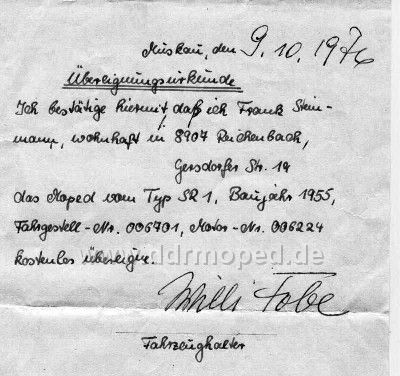 Muskau, den 9.10.1976
Übereignungsurkunde
Ich bestätige hiermit, daß ich Frank Stein-
mann, wohnhaft in 8907 Reichenbach,
Gersdorfer Str. 19
das Moped vom Typ SR 1, Baujahr 1955,
Fahrgestell-Nr. 006701, Motor-Nr. 006224
kostenlos übereigne.
www.ddrmoped.de
Willi Fobe
Fahrzeughalter